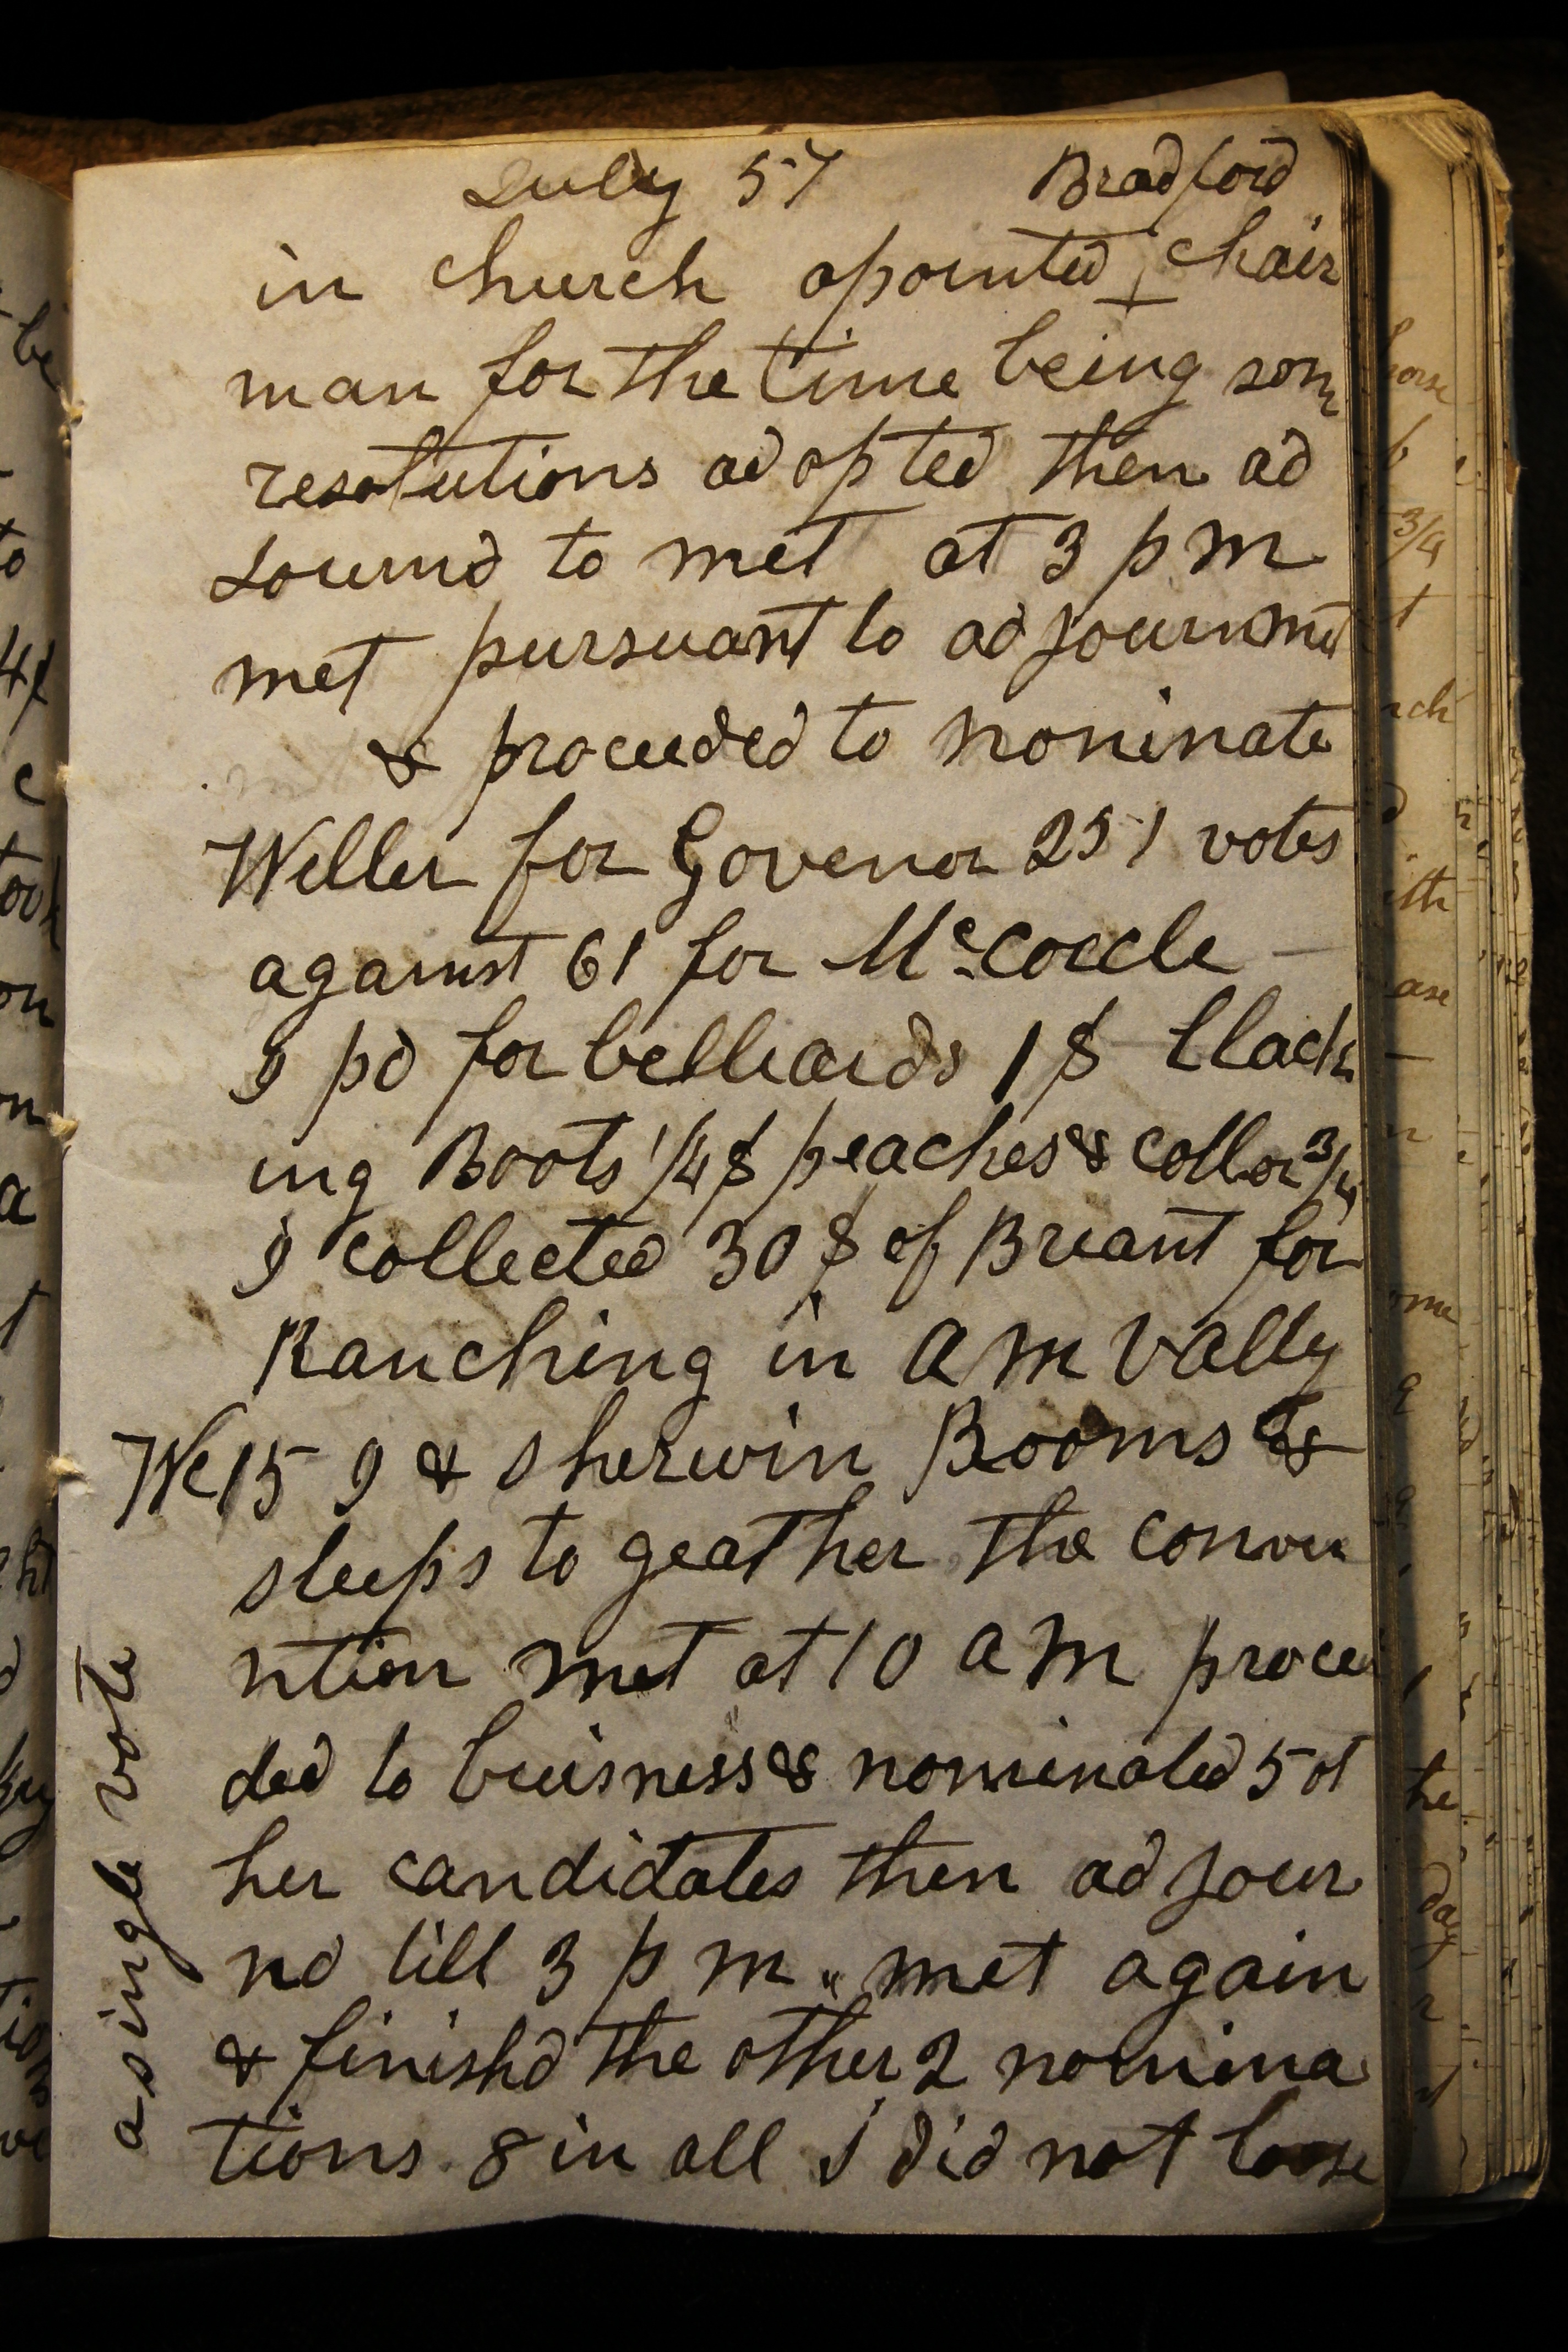 July 57 Bradford
in church apointed chair
man for the time being som
resolutions adopted then ad
Journd to met at 3 p m
met pursuant to adjournmt
& proceeded to noninate
Weller for Govenor 251 votes
against 61 for McCorcle —
I pd for belliards 1 $ black
ing Boots 1/4 $ peaches & collor 3/4
I collected 30 $ of Breant for
Ranching in am Vally
We 15 I & Sherwin Rooms &
sleeps to geather the conven
ntion met at 10 am procee
ded to buisness & nominated 5 ot
her candidates then adjour
nd till 3 p m met again
& finishd the other 2 nomina
tions 8 in all I did not loose
a single vote